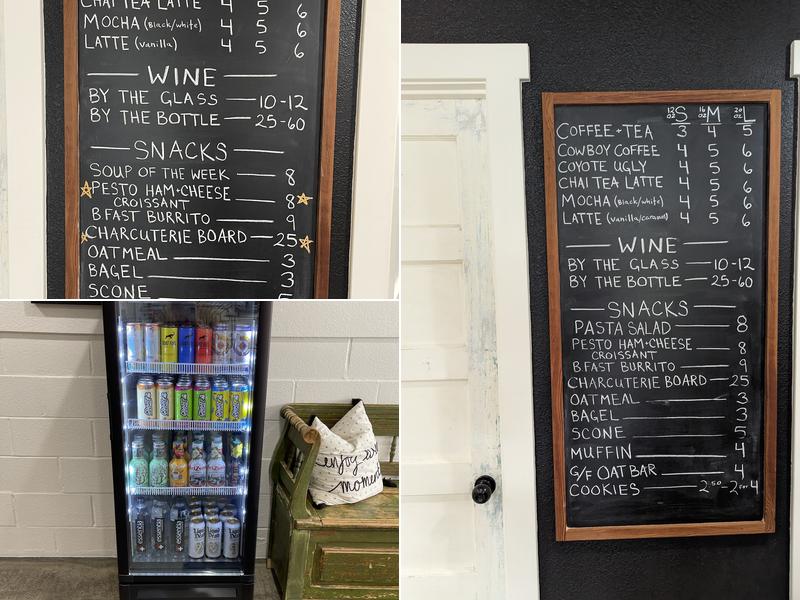 CHAI TEA LATTE 4 5 6
MOCHA (Black/white) 4 5 6
LATTE (vanilla) 4 5 6
WINE
BY THE GLASS 10-12
BY THE BOTTLE 25-60
SNACKS
SOUP OF THE WEEK 8
PESTO HAM+CHEESE
CROISSANT 8
BFAST BURRITO 9
CHARCUTERIE BOARD 25
OATMEAL 3
BAGEL 3
SCONE 5
enjoy
moment
essentia essentia essentia
12oz S 16oz M 20oz L
COFFEE+TEA 3 4 5
COWBOY COFFEE 4 5 6
COYOTE UGLY 4 5 6
CHAI TEA LATTE 4 5 6
MOCHA (Black/white) 4 5 6
LATTE (vanilla/caramel) 4 5 6
WINE
BY THE GLASS 10-12
BY THE BOTTLE 25-60
SNACKS
PASTA SALAD 8
PESTO HAM+CHEESE
CROISSANT 8
BFAST BURRITO 9
CHARCUTERIE BOARD 25
OATMEAL 3
BAGEL 3
SCONE 5
MUFFIN 4
G/F OAT BAR 4
COOKIES 2.50-2 for 4